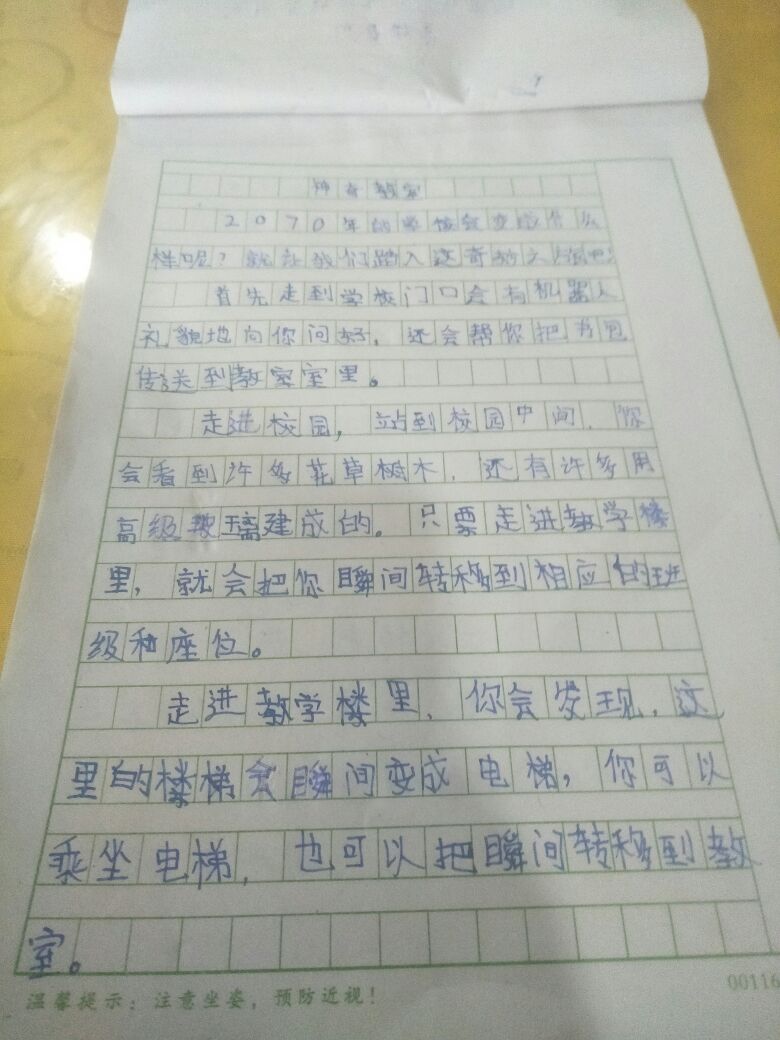 神奇教室
2070年的学校会变成什么
样呢？就让我们踏入这奇妙之
首先走到学校门口会有机器人
礼貌地向你问好，还会帮你把书包
传送到教室室里。
走进校园，站到校园中间，你
会看到许多花草树木，还有许多用
高级玻璃建成的。只要走进教学楼
里，就会把你瞬间转移到相应的班
级和座位。
走进教学楼里，你会发现，这
里的楼梯会瞬间变成电梯，你可以
乘坐电梯，也可以把瞬间转移到教
室。
温馨提示：注意坐姿，预防近视！
00116